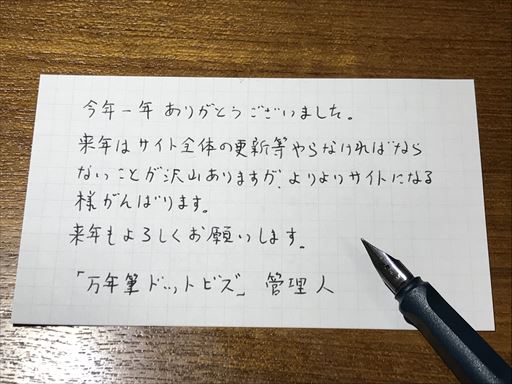 今年一年 ありがとうございました。
来年はサイト全体の更新等やらなければなら
ないことが沢山ありますが、よりよりサイトになる
様がんばります。
来年もよろしくお願いします。
「万年筆ドットビズ」 管理人